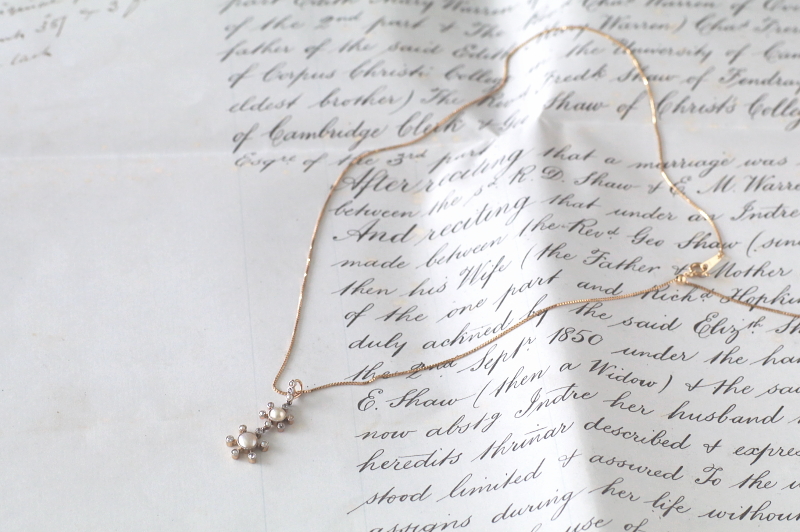 of the 2nd part & The Revd Warren) Chas Fre
father of the said Edith the University of Cam
of Corpus Christi College Fredk Shaw of Fendray
eldest brother) The Revd Shaw of Christ's Colleg
of Cambridge Clerk & Geo
Esqre of the 3rd part
After reciting that a marriage was
between the sd R. D. Shaw & E. M. Warre
And reciting that under an Indre
made between the Revd Geo Shaw (sinc
then his Wife (the Father & Mother
of the one part and Richd Hopkin
duly ackned by the said Elizth Sh
the 2nd Septr 1850 under the ha
E. Shaw (then a Widow) & the sai
now abstg Indre her husband
heredits thrinar described & expres
stood limited & assured To the u
assigns during her life withou
use of